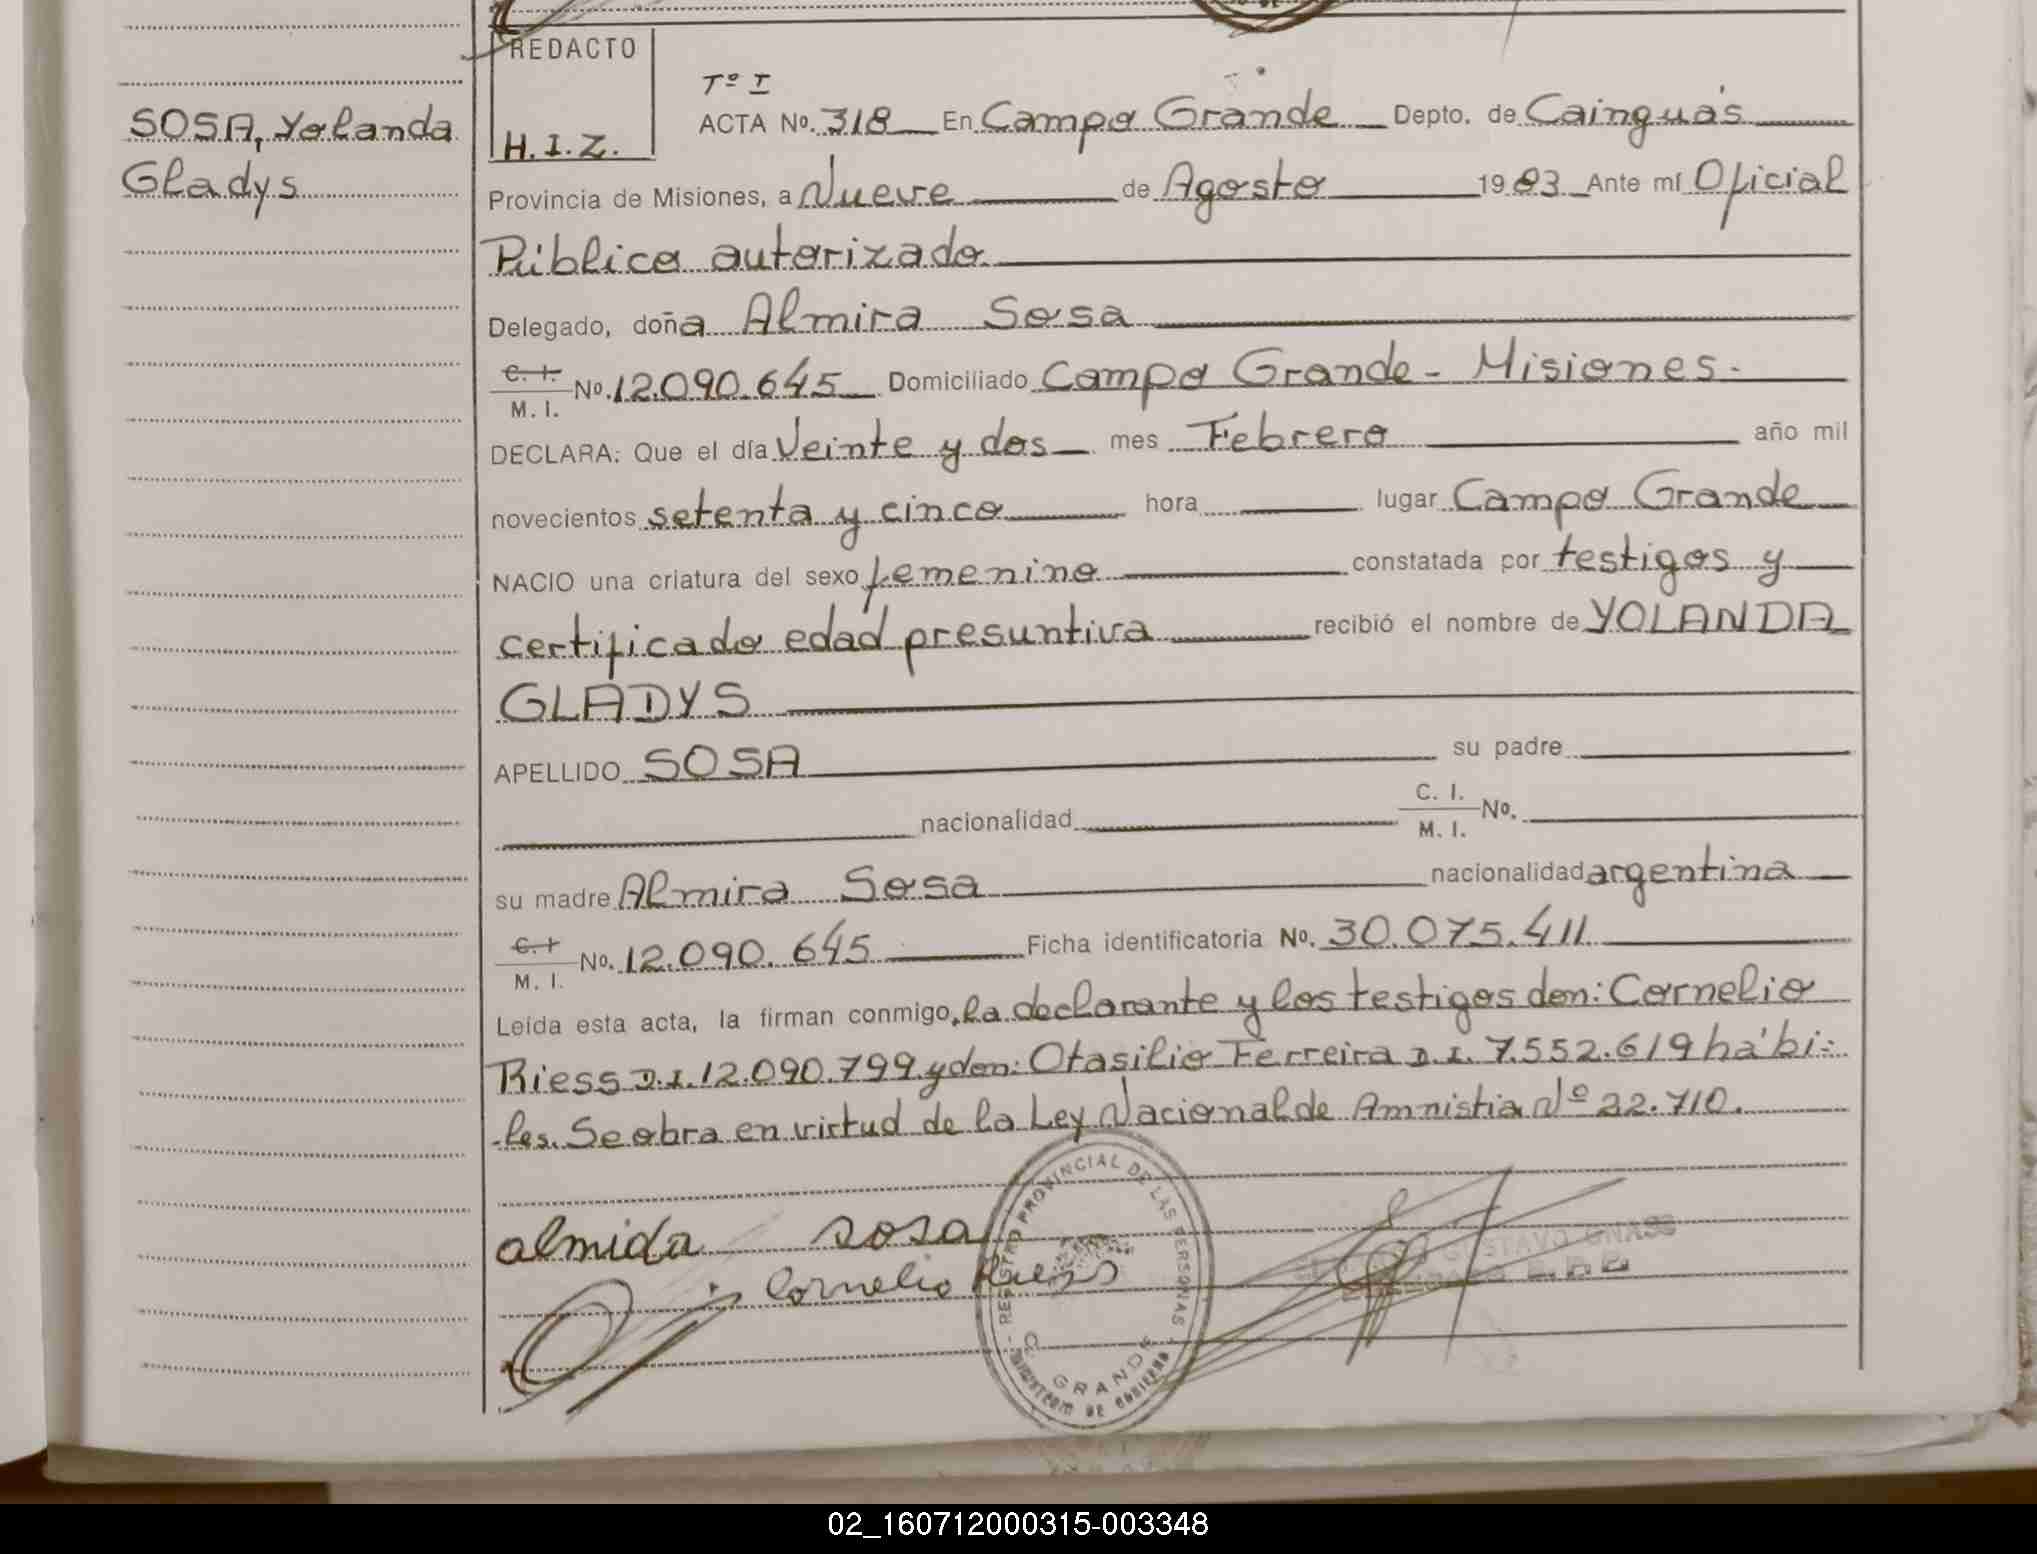 SOSA, Yolanda
Gladys
REDACTO
H. I. Z.
Tº I
ACTA Nº. 318 En Campo Grande Depto. de Cainguás
Provincia de Misiones, a Nueve de Agosto 1983 Ante mí Oficial
Público autorizado
Delegado, doña Almira Sosa
C. I. M. I. Nº. 12.090.645 Domiciliado Campo Grande - Misiones.-
DECLARA: Que el día Veinte y dos mes Febrero año mil
novecientos setenta y cinco hora lugar Campo Grande
NACIO una criatura del sexo femenino constatada por testigos y
certificado edad presuntiva recibió el nombre de YOLANDA
GLADYS
APELLIDO SOSA su padre
nacionalidad C. I. M. I. Nº.
su madre Almira Sosa nacionalidad argentina
C. I. M. I. Nº. 12.090.645 Ficha identificatoria Nº. 30.075.411
Leída esta acta, la firman conmigo, la declarante y los testigos don: Cornelio
Riess D.I. 12.090.799 y don: Otasilio Ferreira D.I. 7.552.619 hábi-
les. Se obra en virtud de la Ley Nacional de Amnistia Nº 22.710.
almida sosa
Cornelio Riess
REGISTRO PROVINCIAL DE LAS PERSONAS
C. GRANDE
MINISTERIO DE GOBIERNO
GUSTAVO GNASS
02_160712000315-003348